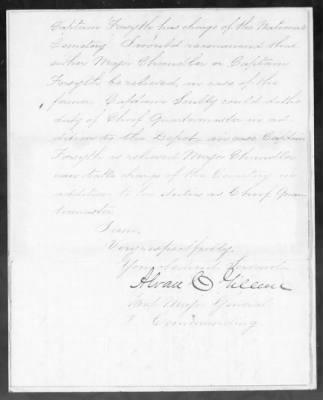 Captain Forsyth has charge of the National
Cemetery. I would recommend that
either Major Chandler or Captain
Forsyth be relieved, in case of the
former Captain Scully could do the
duty of Chief Quartermaster in ad
dition to the Depot, in case Captain
Forsyth is relieved Major Chandler
can take charge of the Cemetery in
addition to his duties as Chief Quar
termaster.
I am,
Very respectfully,
Your obedient Servant
Alvan C Gillem
Bvt Major General
Commanding